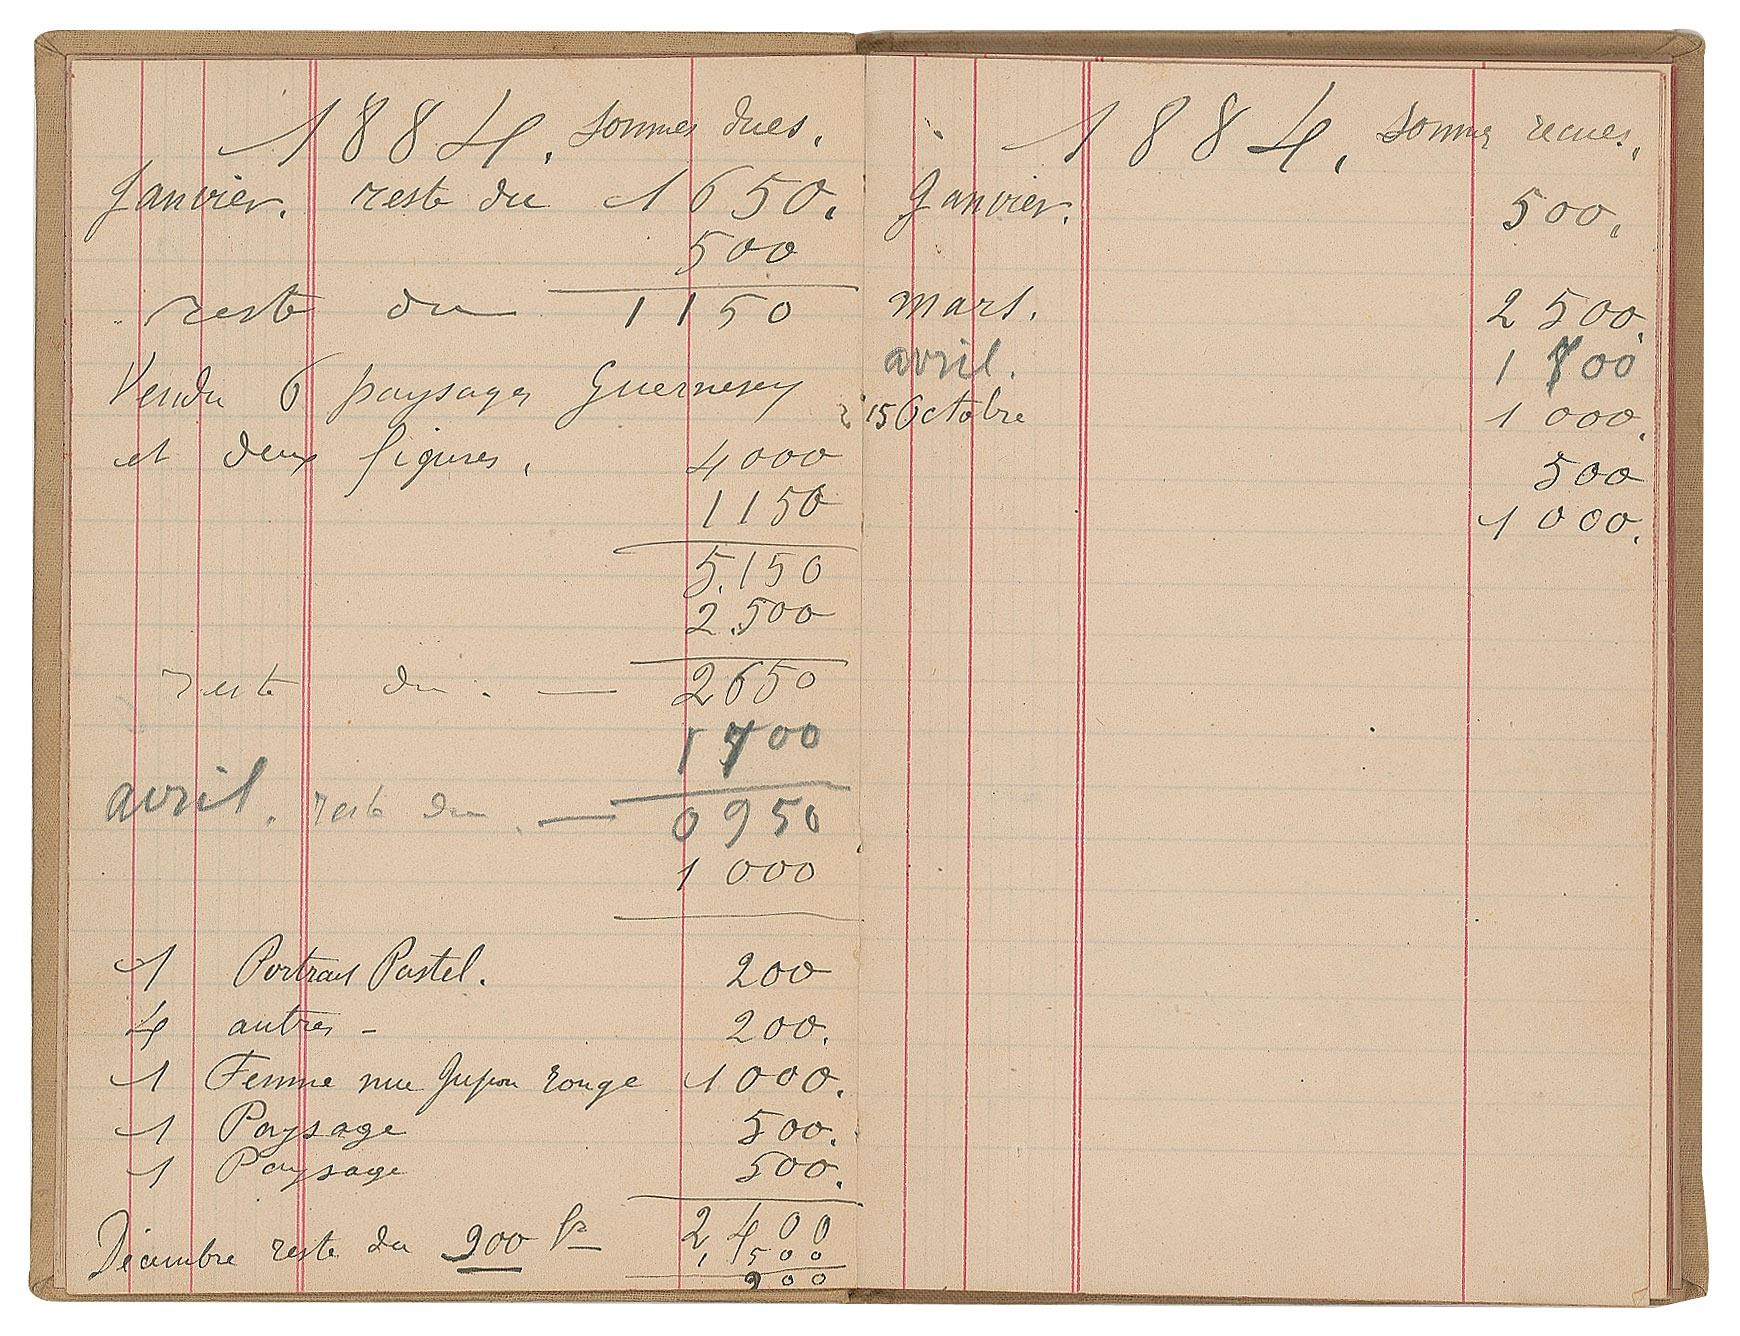 1884. Sommes dues.
Janvier. reste du 1650.
500
reste du 1150
Vendu 6 paysages Guernesey
et deux figures. 4000
1150
5.150
2.500
reste du. — 2650
1700
avril. reste du. — 0950
1000
1 Portrait Pastel. 200
4 autres - 200.
1 Femme nue Jupon rouge 1000.
1 Paysage 500.
1 Paysage 500.
2400
Décembre reste du 900 fr 1,500
900
1884. Sommes recues.
Janvier. 500.
mars. 2500.
avril. 1700
15 Octobre 1000.
500
1000.